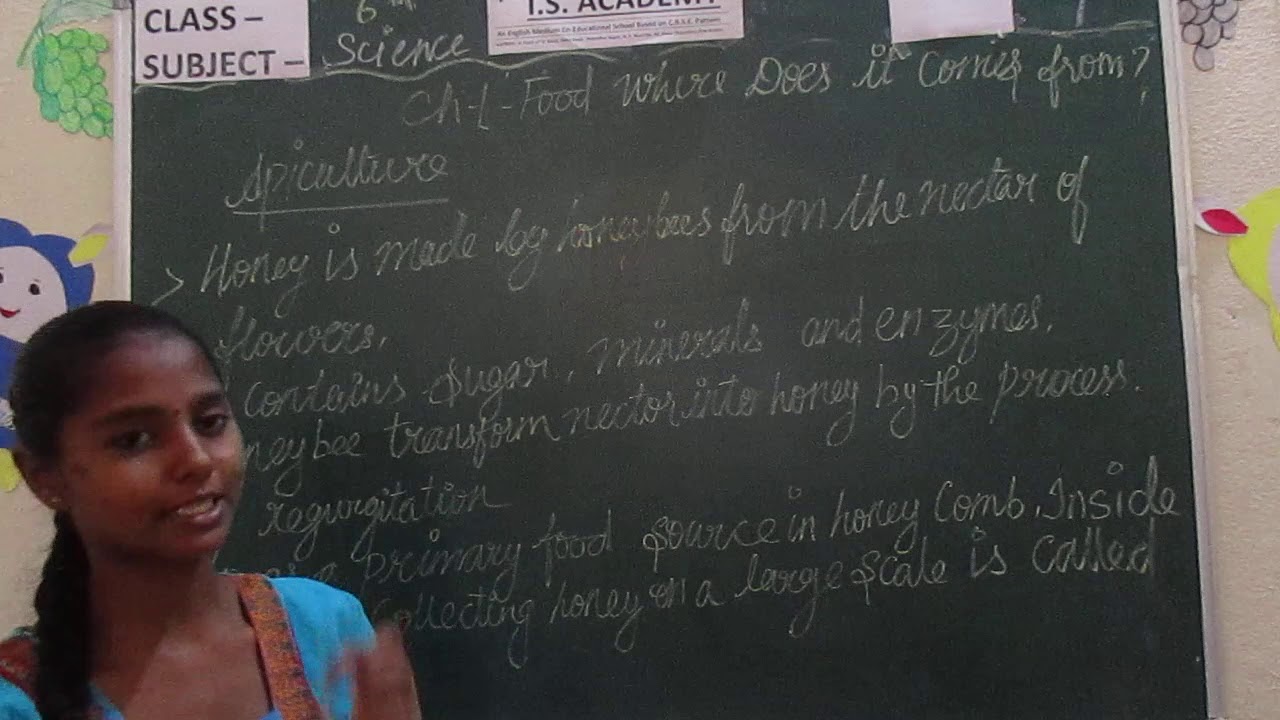 CLASS – 6th
I.S. ACADEMY
An English Medium Co-Educational School Based on C.B.S.E. Pattern
SUBJECT – Science
Ch-1- Food Where Does it Comes from?
Apiculture
> Honey is made by honeybees from the nectar of
flowers.
contains Sugar, minerals and enzymes.
neybee transform nector into honey by the process.
regurgitation
primary food source in honey Comb. Inside
Collecting honey on a large Scale is Called